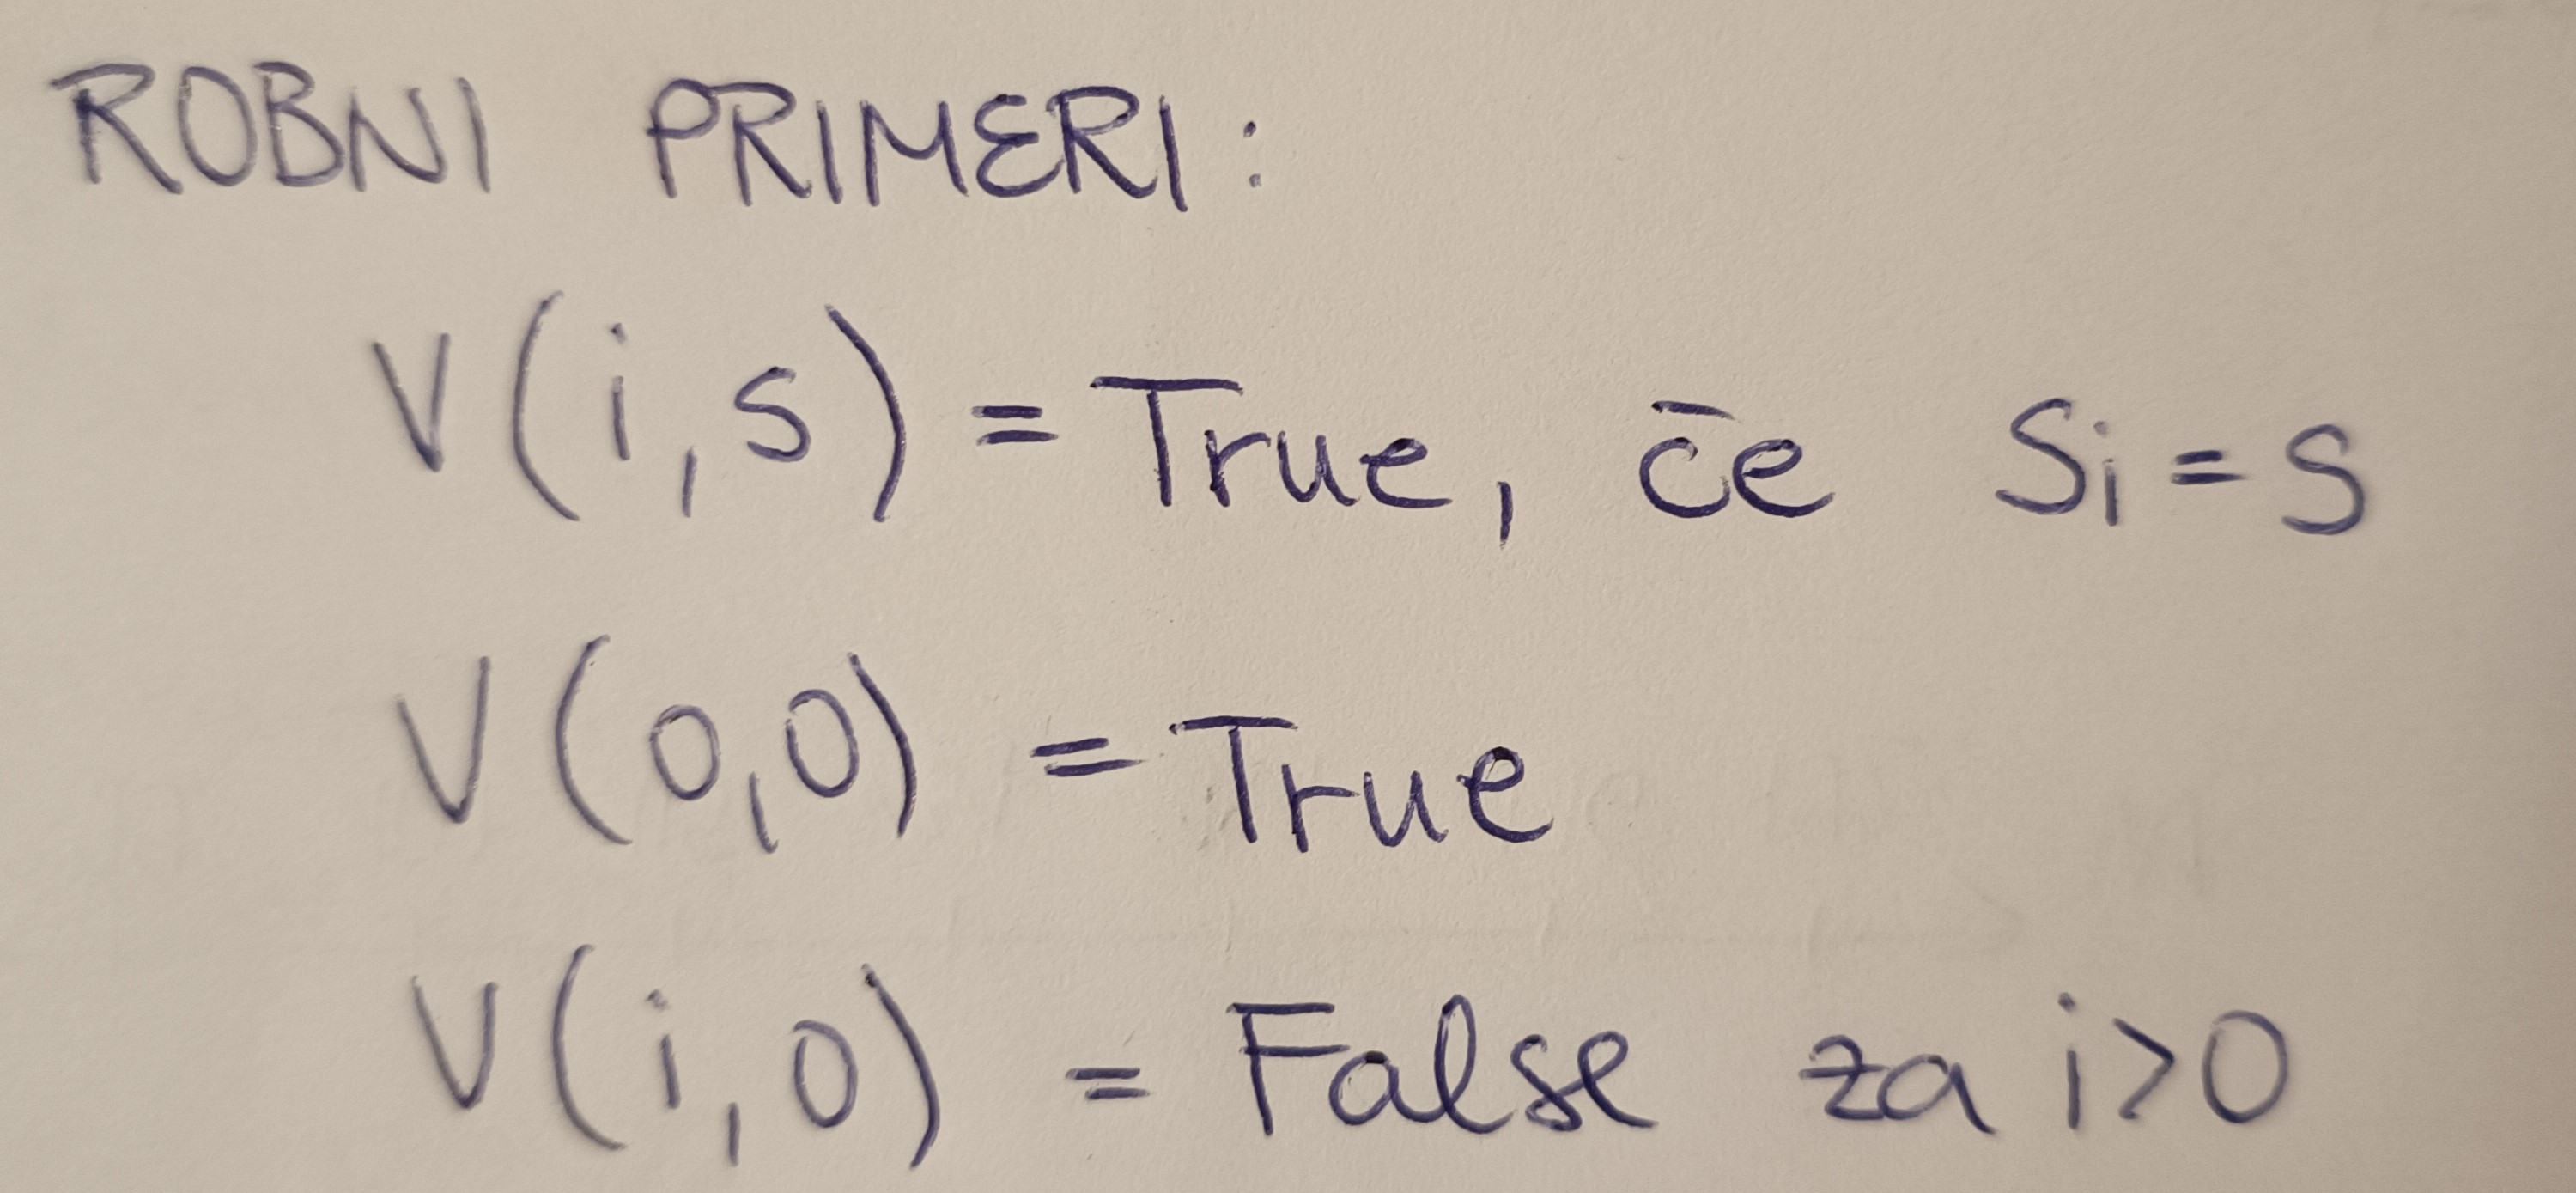 ROBNI PRIMERI:
V(i,s) = True, če Si = S
V(0,0) = True
V(i,0) = False za i>0